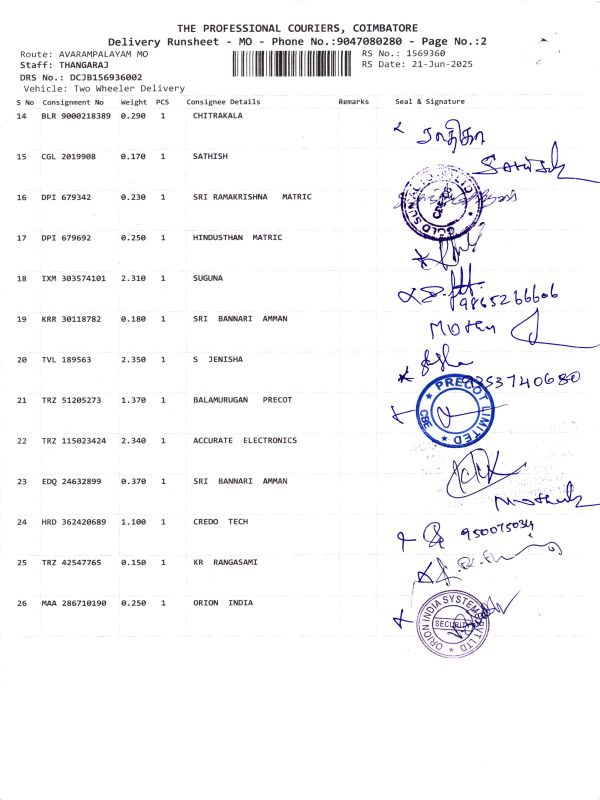 THE PROFESSIONAL COURIERS, COIMBATORE
Delivery Runsheet - MO - Phone No.:9047080280 - Page No.:2
Route: AVARAMPALAYAM MO
RS No.: 1569360
Staff: THANGARAJ
RS Date: 21-Jun-2025
DRS No.: DCJB156936002
Vehicle: Two Wheeler Delivery
S No Consignment No Weight PCS Consignee Details Remarks Seal & Signature
14 BLR 9000218389 0.290 1 CHITRAKALA
ராதிகா
15 CGL 2019908 0.170 1 SATHISH
Sathish
16 DPI 679342 0.230 1 SRI RAMAKRISHNA MATRIC
17 DPI 679692 0.250 1 HINDUSTHAN MATRIC
18 IXM 303574101 2.310 1 SUGUNA
9865266606
19 KRR 30118782 0.180 1 SRI BANNARI AMMAN
20 TVL 189563 2.350 1 S JENISHA
9353740680
21 TRZ 51205273 1.370 1 BALAMURUGAN PRECOT
PRECOT LIMITED
CBE
22 TRZ 115023424 2.340 1 ACCURATE ELECTRONICS
23 EDQ 24632899 0.370 1 SRI BANNARI AMMAN
24 HRD 362420689 1.100 1 CREDO TECH
25 TRZ 42547765 0.150 1 KR RANGASAMI
26 MAA 286710190 0.250 1 ORION INDIA
ORION INDIA SYSTEMS PVT LTD
SECURITY